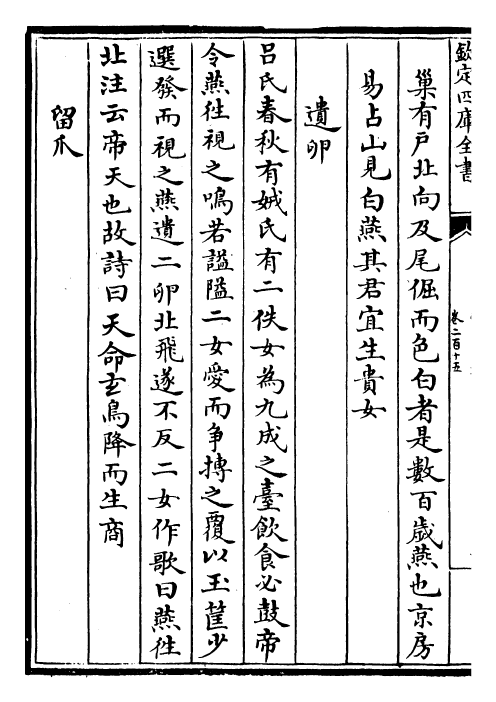 欽定四庫全書
卷二百十五
巢有戸北向及尾倔而色白者是數百歲燕也京房
易占山見白燕其君宜生貴女
遺卵
呂氏春秋有娀氏有二佚女為九成之臺飲食必鼓帝
令燕徃視之鳴若謚隘二女愛而争摶之覆以玉筐少
選發而視之燕遺二卵北飛遂不反二女作歌曰燕徃
北注云帝天也故詩曰天命玄鳥降而生商
留爪